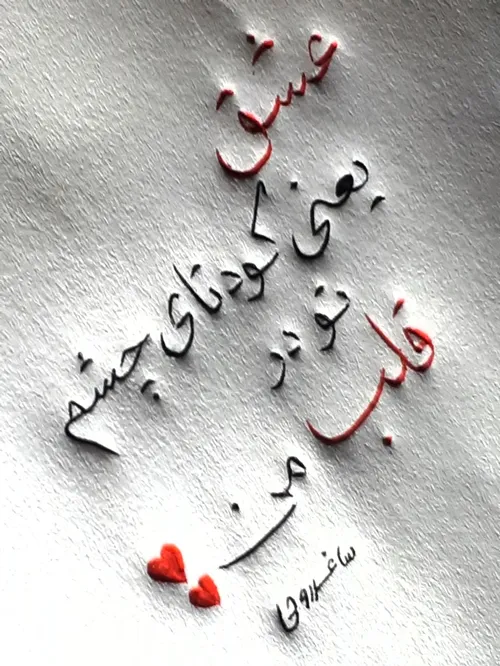 عشق
یعنی کودتای چشم
تو در قلب
من